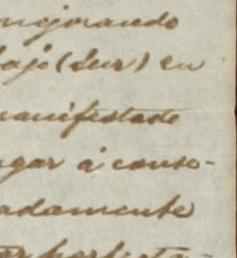 mejorando
bajo (dur) en
manifestado
ugar á conso-
adamente